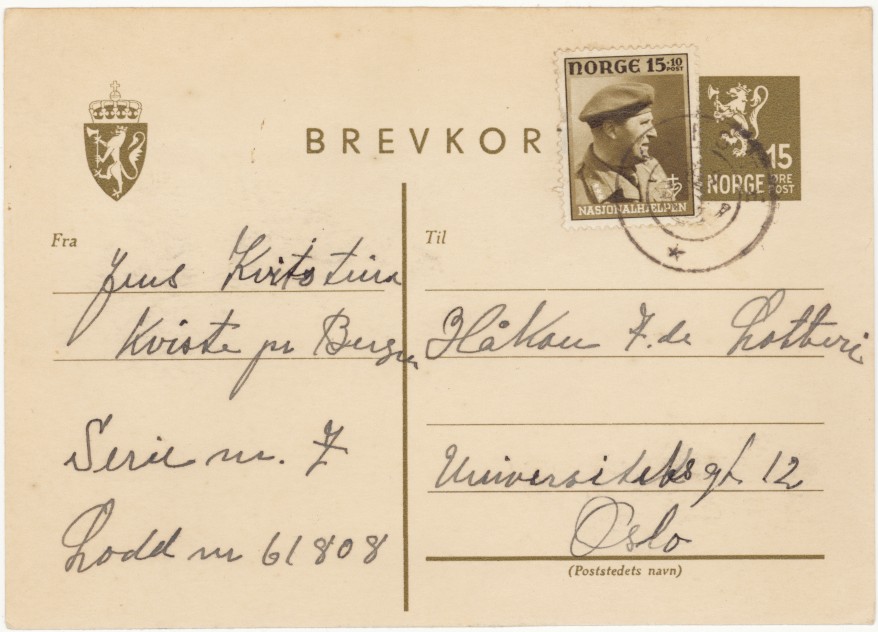 BREVKOR
NORGE 15+10
POST
NASJONALHJELPEN
15
NORGE ØRE
POST
Fra
Jens Kvitstein
Kviste pr Bergen
Serie nr. 7
Lodd nr 61808
Til
Håkon 7. de Lotteri
Universitetsgt 12
Oslo
(Poststedets navn)